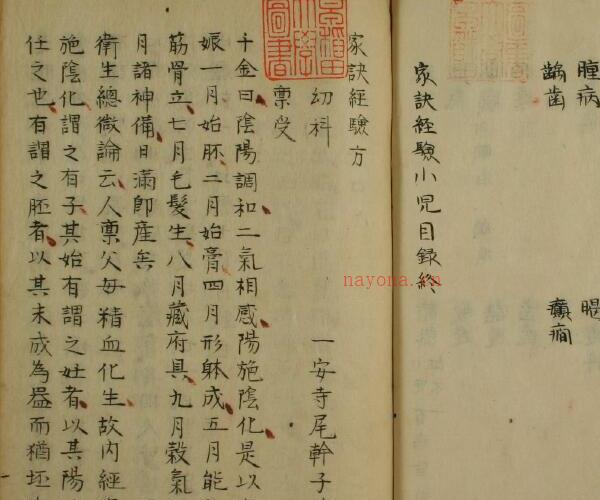 腫病
齲歯
癲癇
家訣経驗小児目録終
家訣経驗方
幼科 一安寺尾幹子
稟受
千金曰陰陽調和二氣相感陽施陰化是以
娠一月始胚二月始膏四月形躰成五月能
筋骨立七月毛髮生八月藏府具九月穀氣
月諸神備日滿即産矣
衛生總微論云人稟父母精血化生故内經
施陰化謂之有子其始有謂之妊者以其陽
任之也有謂之胚者以其未成為器而猶坯
nayona.cn